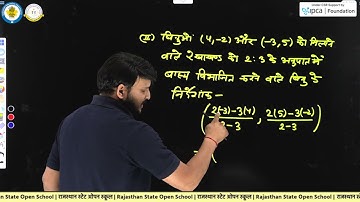 Under CSR Support by
ipca Foundation
(ii) बिन्दुओं (4,-2) और (-3,5) को मिलाने
वाले रेखाखण्ड को 2:3 के अनुपात में
बाह्य विभाजित करने वाले बिन्दु के
निर्देशांक-
(2(-3)-3(4)/2-3, 2(5)-3(-2)/2-3)
an State Open School | राजस्थान स्टेट ओपन स्कूल | Rajasthan State Open School | राजस्थान स्टेट ओपन स्कूल | Raja